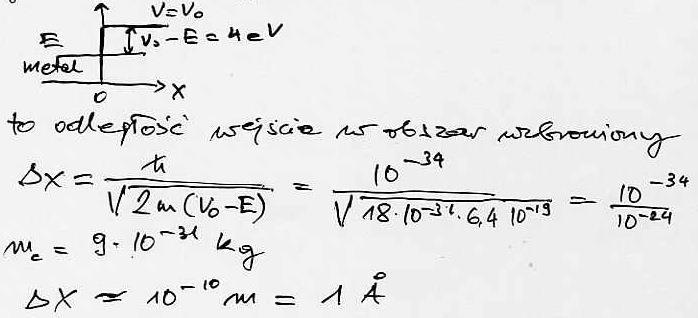 V=V₀
E
V₀-E = 4eV
metal
0
x
to odległość wejścia w obszar wzbroniony
Δx = ħ / √2m(V₀-E) = 10⁻³⁴ / √18·10⁻³¹·6,4 10⁻¹⁹ = 10⁻³⁴ / 10⁻²⁴
mₑ = 9·10⁻³¹ kg
Δx ≈ 10⁻¹⁰ m = 1 Å